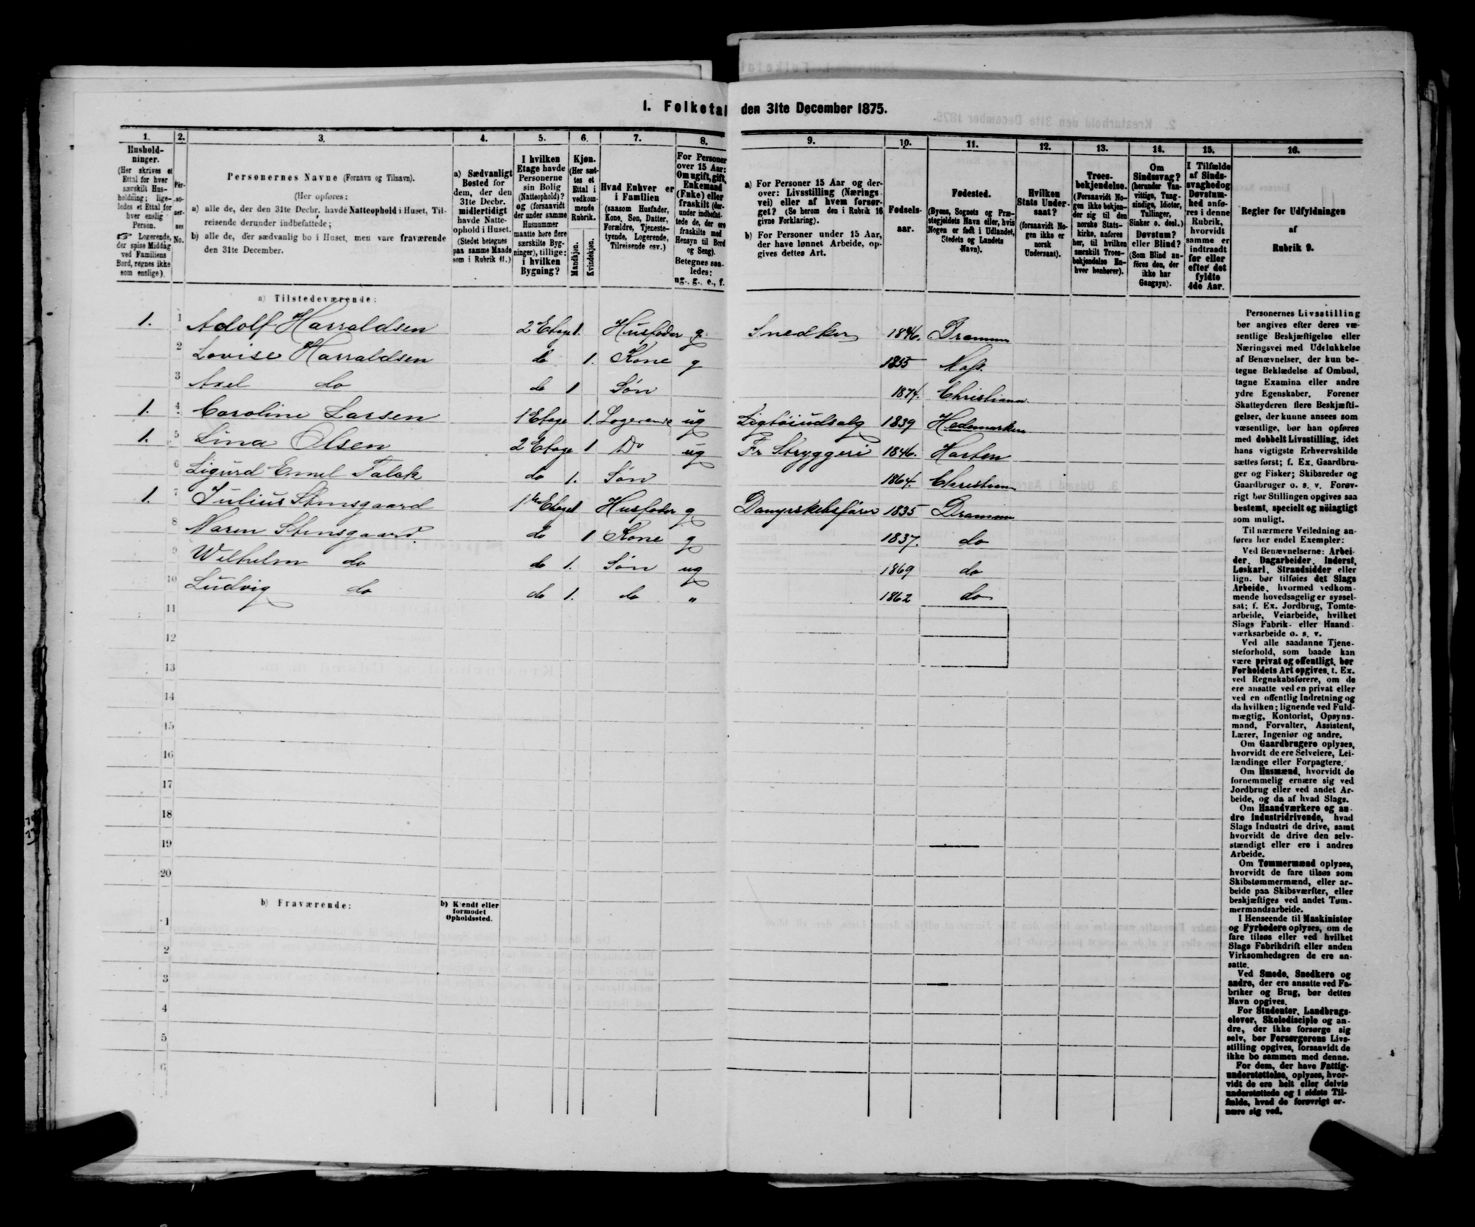 I. Folketal den 31te December 1875.
1. 2. 3. 4. 5. 6. 7. 8. 9. 10. 11. 12. 13. 14. 15. 16.
Hushold-
ninger.
(Her skrives et
Ettal for hver
særskilt Hus-
holdning; lige-
ledes et Ettal for
hver enslig
Person.
☞ Logerende,
der spise Middag
ved Familiens
Bord, regnes ikke
som enslige).
Per-
so-
ner-
nes
No.
Personernes Navne (Fornavn og Tilnavn).
(Her opføres:
a) alle de, der den 31te Decbr. havde Natteophold i Huset, Til-
reisende derunder indbefattede;
b) alle de, der sædvanlig bo i Huset, men vare fraværende
den 31te December.
a) Sædvanligt
Bosted for
dem, der den
31te Decbr.
midlertidigt
havde Natte-
ophold i Huset.
(Stedet betegnes
paa samme Maade
som i Rubrik 11.)
I hvilken
Etage havde
Personerne
sin Bolig
(Natteophold)?
og (forsaavidt
der under samme
Husnummer
maatte høre flere
særskilte Byg-
ninger), tillige:
i hvilken
Bygning?
Kjøn.
(Her sæt-
tes et
Ettal i
vedkom-
mende
Rubrik.
Mandkjøn.
Kvindekjøn.
Hvad Enhver er
i Familien
(saasom Husfader,
Kone, Søn, Datter,
Forældre, Tjeneste-
tyende, Logerende,
Tilreisende osv.)
For Personer
over 15 Aar:
Om ugift, gift,
Enkemand
(Enke) eller
fraskilt (der-
under indbefat-
tede de, der ere
fraskilte med
Hensyn til Bord
og Seng).
Betegnes saa-
ledes:
ug., g., e., f.
a) For Personer 15 Aar og der-
over: Livsstilling (Nærings-
vei) eller af hvem forsør-
get? (Se herom den i Rubrik 16
givne Forklaring).
b) For Personer under 15 Aar,
der have lønnet Arbeide, op-
gives dettes Art.
Fødsels-
aar.
Fødested.
(Byens, Sognets og Præ-
stegjeldets Navn eller, hvis
Nogen er født i Udlandet,
Stedets og Landets
Navn).
Hvilken
Stats Under-
saat?
(forsaavidt No-
gen ikke er
norsk
Undersaat).
Troes-
bekjendelse.
(Forsaavidt No-
gen ikke bekjen-
der sig til den
norske Stats-
kirke, anføres
her, til hvilken
særskilt Troes-
bekjendelse En-
hver henhører).
Om
Sindssvag?
(herunder Van-
vittige, Tung-
sindige, Idioter,
Tullinger,
Sinker o. desl.)
Døvstum?
eller Blind?
(Som Blind an-
føres den, der
ikke har
Gangsyn).
I Tilfælde
af Sinds-
svaghed og
Døvstum-
hed anfø-
res i denne
Rubrik,
hvorvidt
samme er
indtraadt
før eller
efter det
fyldte
4de Aar.
Regler for Udfyldningen
af
Rubrik 9.
a) Tilstedeværende:
1. 1 Adolf Harraldsen 2 Etage 1. Husfader g. Snedker 1846. Drammen
2 Lovise Harraldsen do 1. Kone g 1855 Moss
3 Axel do do 1 Søn 1874. Christiania
1. 4 Caroline Larsen 1 Etage 1. Logerende ug 1839 Hedemarken
1. 5 Lina Olsen 2 Etage 1 Do ug Fr Stryggeri 1846. Horten
6 Sigurd Emil Falak do 1. Søn 1864. Christiania
1. 7 Julius Stensgaard 1te Etage 1 Husfader g Dampskibsfører 1835 Drammen
8 Maren Stensgaard do 1 Kone g 1837. do
9 Wilhelm do do 1. Søn ug 1869 do
10 Ludvig do do 1. do " 1862 do
11
12
13
14
15
16
17
18
19
20
b) Fraværende:
b) Kjendt eller
formodet
Opholdssted.
1
2
3
4
5
6
Personernes Livsstilling
bør angives efter deres væ-
sentlige Beskjæftigelse eller
Næringsvei med Udelukkelse
af Benævnelser, der kun be-
tegne Beklædelse af Ombud,
tagne Examina eller andre
ydre Egenskaber. Forener
Skatteyderen flere Beskjæfti-
gelser, der kunne ansees som
væsentlige, bør han opføres
med dobbelt Livsstilling, idet
hans vigtigste Erhvervskilde
sættes først; f. Ex. Gaardbru-
ger og Fisker; Skibsreder og
Gaardbruger o. s. v. Forøv-
rigt bør Stillingen opgives saa
bestemt, specielt og nøiagtigt
som muligt.
Til nærmere Veiledning an-
føres her endel Exempler:
Ved Benævnelserne: Arbei-
der, Dagarbeider, Inderst,
Løskarl, Strandsidder eller
lign. bør tilføies det Slags
Arbeide, hvormed vedkom-
mende hovedsagelig er syssel-
sat; f. Ex. Jordbrug, Tomte-
arbeide, Veiarbeide, hvilket
Slags Fabrik- eller Haand-
værksarbeide o. s. v.
Ved alle saadanne Tjene-
steforhold, som baade kan
være privat og offentligt, bør
Forholdets Art opgives, t. Ex.
ved Regnskabsførere, om de
ere ansatte ved en privat eller
ved en offentlig Indretning og
da hvilken; lignende ved Fuld-
mægtig, Kontorist, Opsyns-
mand, Forvalter, Assistent,
Lærer, Ingeniør og andre.
Om Gaardbrugere oplyses,
hvorvidt de ere Selveiere, Lei-
lændinge eller Forpagtere.
Om Husmænd, hvorvidt de
fornemmelig ernære sig ved
Jordbrug eller ved andet Ar-
beide, og da af hvad Slags.
Om Haandværkere og an-
dre Industridrivende, hvad
Slags Industri de drive, samt
hvorvidt de drive den selv-
stændigt eller ere i andres
Arbeide.
Om Tømmermænd oplyses,
hvorvidt de fare tilsøs som
Skibstømmermænd, eller ar-
beide paa Skibsværfter, eller
beskjæftiges ved andet Tøm-
mermandsarbeide.
I Henseende til Maskinister
og Fyrbødere oplyses, om de
fare tilsøs eller ved hvilket
Slags Fabrikdrift eller anden
Virksomhedsgren de ere an-
satte.
Ved Smede, Snedkere og
andre, der ere ansatte ved Fa-
briker og Brug, bør dettes
Navn opgives.
For Studenter, Landbrugs-
elever, Skoledisciple og an-
dre, der ikke forsørge sig
selv, bør Forsørgerens Livs-
stilling opgives, forsaavidt de
ikke bo sammen med denne.
For dem, der have Fattig-
understøttelse, oplyses, hvor-
vidt de ere helt eller delvis
understøttede og i sidste Til-
fælde, hvad de forøvrigt er-
nære sig ved.